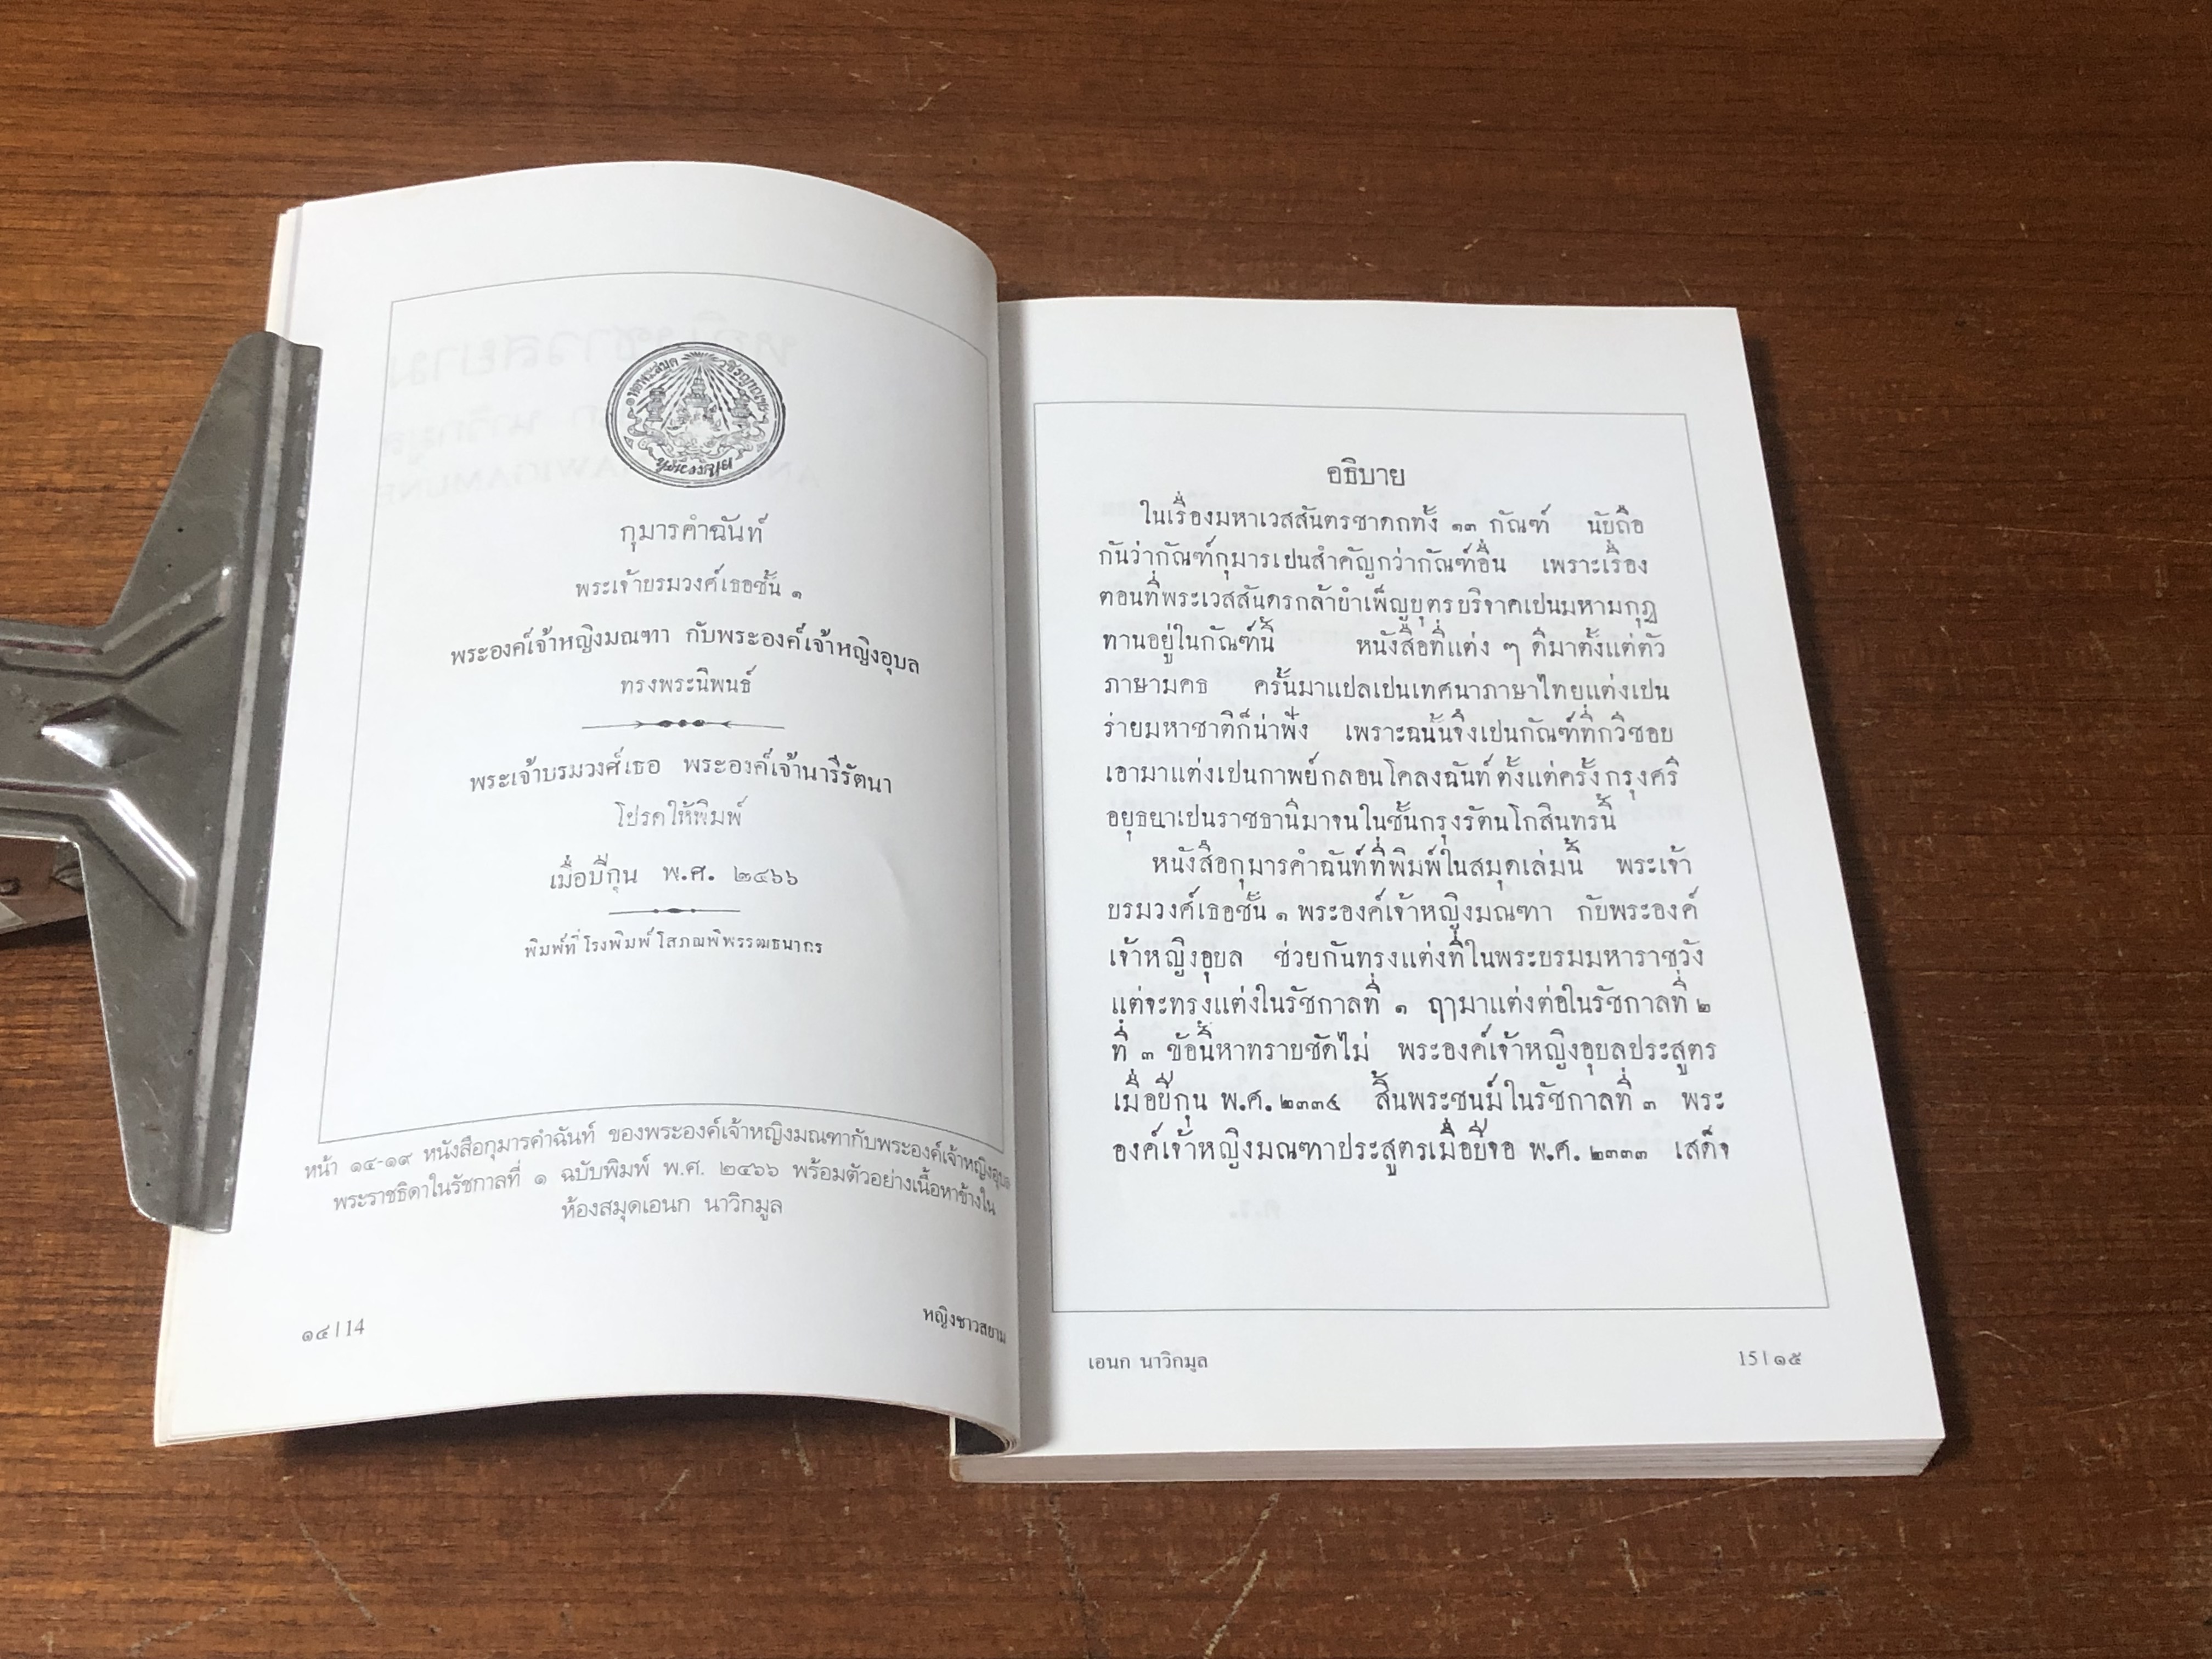 หอพระสมุด วชิรญาณ
กุมารคำฉันท์
พระเจ้าบรมวงศ์เธอชั้น ๑
พระองค์เจ้าหญิงมณฑา กับพระองค์เจ้าหญิงอุบล
ทรงพระนิพนธ์
พระเจ้าบรมวงศ์เธอ พระองค์เจ้านารีรัตนา
โปรดให้พิมพ์
เมื่อปีกุน พ.ศ. ๒๔๖๖
พิมพ์ที่โรงพิมพ์โสภณพิพรรฒธนากร
หน้า ๑๔-๑๙ หนังสือกุมารคำฉันท์ ของพระองค์เจ้าหญิงมณฑากับพระองค์เจ้าหญิงอุบล
พระราชธิดาในรัชกาลที่ ๑ ฉบับพิมพ์ พ.ศ. ๒๔๖๖ พร้อมตัวอย่างเนื้อหาข้างใน
ห้องสมุดเอนก นาวิกมูล
๑๔ | 14
หญิงชาวสยาม
อธิบาย
ในเรื่องมหาเวสสันตรชาดกทั้ง ๑๓ กัณฑ์ นับถือ
กันว่ากัณฑ์กุมารเปนสำคัญกว่ากัณฑ์อื่น เพราะเรื่อง
ตอนที่พระเวสสันดรกล้าบำเพ็ญบุตรบริจาคเปนมหามกุฎ
ทานอยู่ในกัณฑ์นี้ หนังสือที่แต่ง ๆ ดีมาตั้งแต่ตัว
ภาษามคธ ครั้นมาแปลเปนเทศนาภาษาไทยแต่งเปน
ร่ายมหาชาติก็น่าฟัง เพราะฉนั้นจึงเปนกัณฑ์ที่กวีชอบ
เอามาแต่งเปนกาพย์กลอนโคลงฉันท์ ตั้งแต่ครั้งกรุงศรี
อยุธยาเปนราชธานีมาจนในชั้นกรุงรัตนโกสินทรนี้
หนังสือกุมารคำฉันท์ที่พิมพ์ในสมุดเล่มนี้ พระเจ้า
บรมวงศ์เธอชั้น ๑ พระองค์เจ้าหญิงมณฑา กับพระองค์
เจ้าหญิงอุบล ช่วยกันทรงแต่งที่ในพระบรมมหาราชวัง
แต่จะทรงแต่งในรัชกาลที่ ๑ ฤๅมาแต่งต่อในรัชกาลที่ ๒
ที่ ๓ ข้อนี้หาทราบชัดไม่ พระองค์เจ้าหญิงอุบลประสูตร
เมื่อปีกุน พ.ศ. ๒๓๓๔ สิ้นพระชนม์ในรัชกาลที่ ๓ พระ
องค์เจ้าหญิงมณฑาประสูตรเมื่อปีจอ พ.ศ. ๒๓๓๓ เสด็จ
เอนก นาวิกมูล
15 | ๑๕